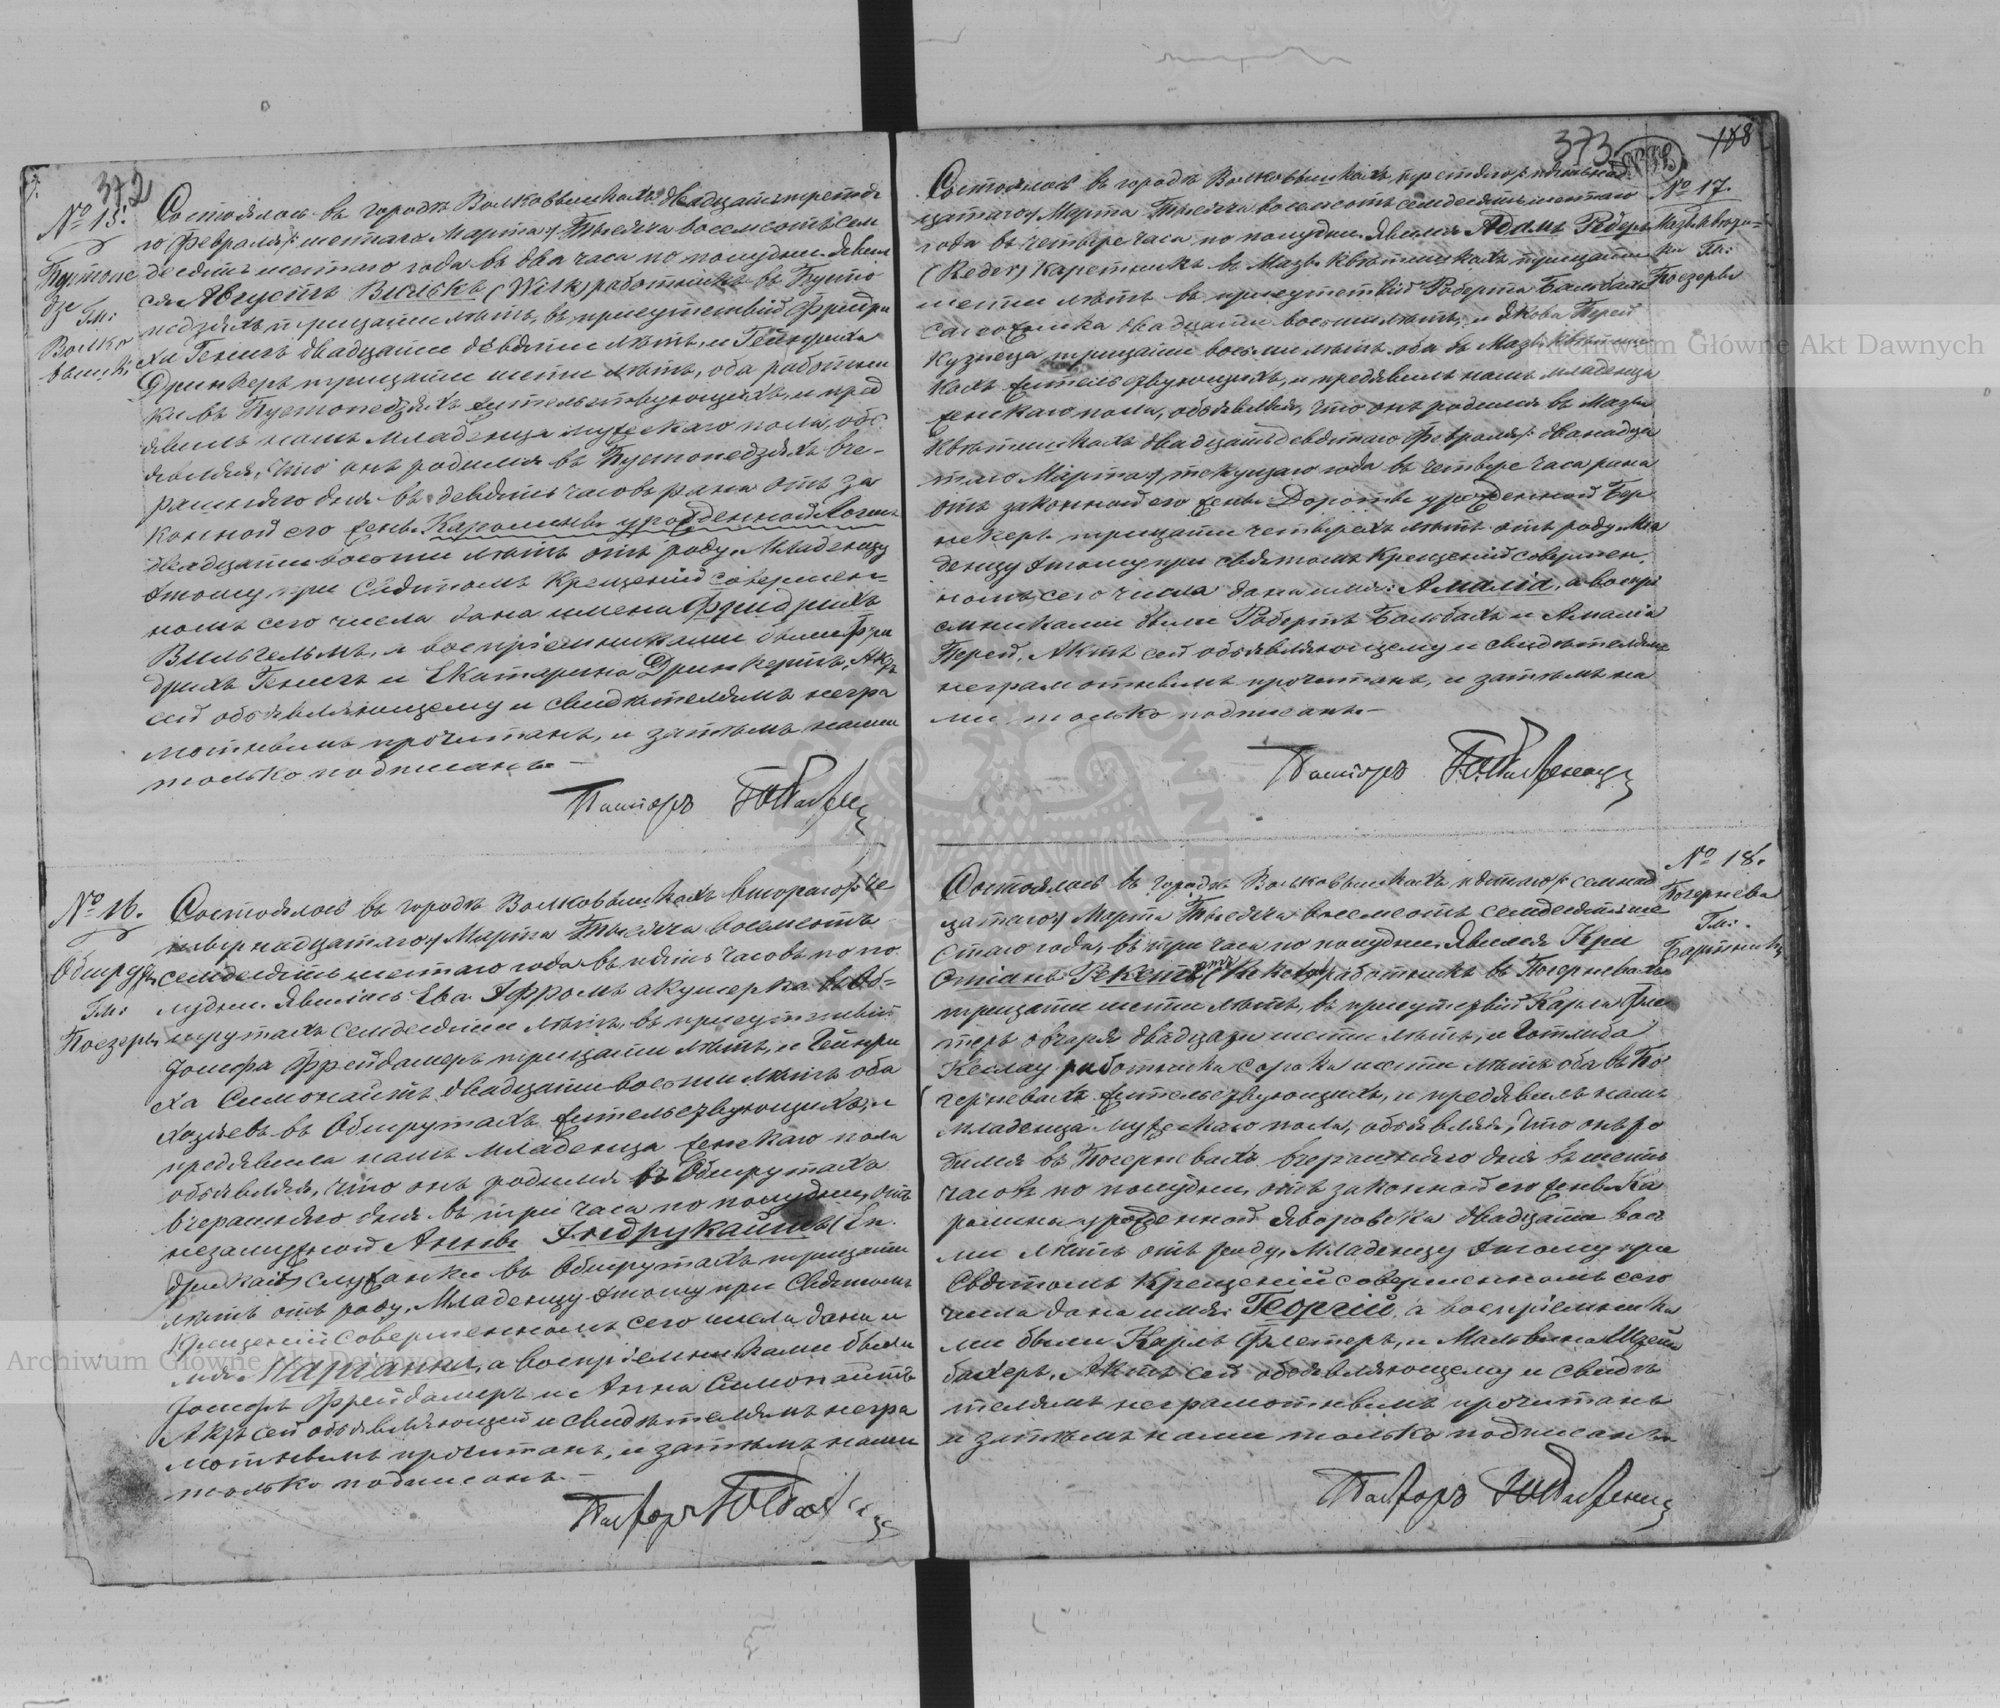 372
№ 15.
Пустопе
дзе
Гм:
Волко
вышк,
Состоялось въ городѣ Волковышкахъ двадцать третья
го Февраля /: шестаго Марта :/ Тысяча восемсотъ сем
десятъ шестаго года въ два часа по полудни. Явил
ся Августъ Вилькъ (Wilk) работникъ въ Пусто
педзяхъ тридцати лѣтъ, въ присутствіи Фридри
ха Генигъ двадцати девяти лѣтъ, и Гейнриха
Дринкертъ тридцати шести лѣтъ, оба работни
ки въ Пустопедзяхъ жительствующихъ, и пред
явилъ намъ младенца мужескаго пола, объ
являя, что онъ родился въ Пустопедзяхъ вче-
рашняго дня въ девять часовъ рана отъ за
конной его жены Каролины урожденной
двадцати восьми лѣтъ отъ роду. Младенцу
этому при Святомъ Крещеніи совершен-
номъ сего числа дана имена Фридрихъ
Вильгельмъ, а воспріемниками были Фри
дрихъ Генигъ и Екатерина Дринкертъ. Актъ
сей объявляющему и свидѣтелямъ негра
мотнымъ прочитанъ, и затѣмъ нами
только подписанъ. —
Пасторъ
№ 16.
Обшруты
Гм:
Поезеры
Состоялось въ городѣ Волковышкахъ втораго /: че
твернадцатаго :/ Марта Тысяча восемсотъ
семдесятъ шестаго года въ пять часовъ по по
лудни. Явилась Ева Эфромъ акушерка въ Об-
шрутахъ семдесяти лѣтъ, въ присутствіи
Іосифа Фрейдамеръ тридцати лѣтъ, и Гейнри
ха Симонайтъ двадцати восьми лѣтъ оба
хозяевъ въ Обшрутахъ жительствующихъ, и
предявила намъ младенца женскаго пола
объявляя, что онъ родился въ Обшрутахъ
вчерашняго дня въ три часа по полудни, отъ
незамужной Анны Эндрукайтъ (En
drikait) служанки въ Обшрутахъ тридцати
лѣтъ отъ роду. Младенцу этому при Святомъ
Крещеніи совершенномъ сего числа дана и
мя Маріанна, а воспріемниками были
Іосифъ Фрейдамеръ и Анна Симонайтъ
Актъ сей объявляющей и свидѣтелямъ негра
мотнымъ прочитанъ, и затѣмъ нами
только подписанъ. —
Пасторъ
373
168
№ 17.
Гм:
Поезеры
Состоялось въ городѣ Волковышкахъ, третяго /: пятнад
цатаго :/ Марта Тысяча восемсотъ семдесятъ шестаго
года въ четыре часа по полудни. Явился Адамъ Редеръ
(Reder) каретникъ въ Мазъ Квѣтишкахъ тридцати
шести лѣтъ въ присутствіи Роберта Бальбахъ
сапожника двадцати восьми лѣтъ, и Якова Прей
кузнеца тридцати восьми лѣтъ оба въ Мазъ Квѣтиш
кахъ жительствующихъ, и предявилъ намъ младенца
женскаго пола, объявляя, что онъ родился въ Мазъ
Квѣтишкахъ двадцать девятаго Февраля /: дванадца
таго Марта :/ текущаго года въ четыре часа рана
отъ законной его жены Доротѣ урожденной Бер
некеръ тридцати четырехъ лѣтъ отъ роду. Мла
денцу этому при святомъ Крещеніи совершен
номъ сего числа дана имя: Амалія, а воспрі
емниками были Робертъ Бальбахъ и Амалія
Прей. Актъ сей объявляющему и свидѣтелямъ
неграмотнымъ прочитанъ, и затѣмъ на
ми только подписанъ. —
Пасторъ
№ 18.
Почернева
Гм:
Бартники
Состоялось въ городѣ Волковышкахъ пятаго /: семнад
цатаго :/ Марта Тысяча восемсотъ семдесятъ ше
стаго года, въ три часа по полудни. Явился Кри
стіанъ Рекетъ (Reket) работникъ въ Почерневахъ
тридцати шести лѣтъ, въ присутствіи Карла Фле
теръ овчаря двадцати шести лѣтъ, и Готлиба
Кеслау работника сорока шести лѣтъ оба въ По
черневахъ жительствующихъ, и предявилъ намъ
младенца мужескаго пола, объявляя, что онъ ро
дился въ Почерневахъ вчерашняго дня въ шесть
часовъ по полудни, отъ законной его жены Ка
ролины урожденной Яворовска двадцати вось
ми лѣтъ отъ роду. Младенцу этому при
Святомъ Крещеніи совершенномъ сего
числа дана имя: Георгій, а воспріемника
ми были Карлъ Флетеръ, и Мальвина Шрей
бахеръ. Актъ сей объявляющему и свидѣ
телямъ неграмотнымъ прочитанъ
и затѣмъ нами только подписанъ. —
Пасторъ
Archiwum Główne Akt Dawnych
Archiwum Główne Akt Dawnych